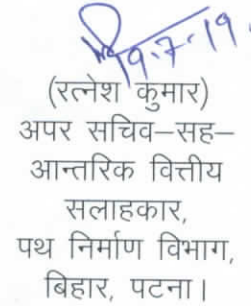 19.7.19.
(रत्नेश कुमार)
अपर सचिव–सह–
आन्तरिक वित्तीय
सलाहकार,
पथ निर्माण विभाग,
बिहार, पटना।